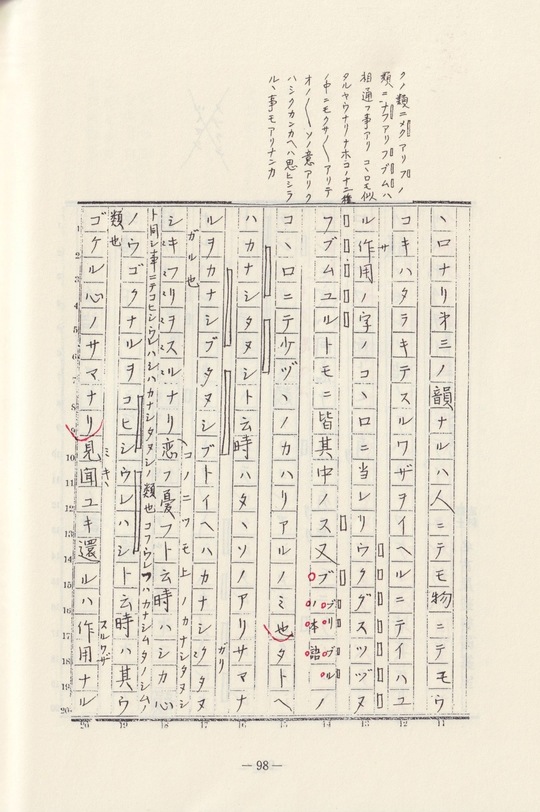 クノ類ニメクアリフノ
類ニナフアリフブムハ
相通フ事アリコヽロモ似
タルヤウナリナホコノナニ種
ノ中ニモクサ〳〵アリテ
オノ〳〵ソノ意アリク
ハシクカンカヘハ思ヒシラ
ルヽ事モアリナンカ
ヽロナリ才三ノ韻ナルハ人ニテモ物ニテモウ
コキハタラキテスルワザヲイヘルニテイハユ
サ
ル作用ノ字ノコヽロニ当レリウクグスツヅヌ
フブムユルトモニ皆其中ノス又ブノ
ブリブル
ノ本語
コヽロニテ少ヅヽノカハリアルノミ也タトヘ
ハカナシタヌシト云時ハタヽソノアリサマナ
ガリ
ルヲカナシブタヌシブトイヘハカナシクタヌ
ガル也
コノニツモ上ノカナシタヌシ
シキフリヲスルナリ恋フ憂フト云時ハシカ心
ト同シ事ニテコヒシウレハシハカナシタヌシノ類也コフウレフハカナシムタノシムノ
ノウゴクナルヲコヒシウレハシト云時ハ其ウ
類也
ミキハ
スルワザ
ゴケル心ノサマナリ見聞ユキ還ルハ作用ナル
1 2 3 4 5 6 7 8 9 10 11 12 13 14 15 16 17 18 19 20
11 12 13 14 15 16 17 18 19 20
— 98 —